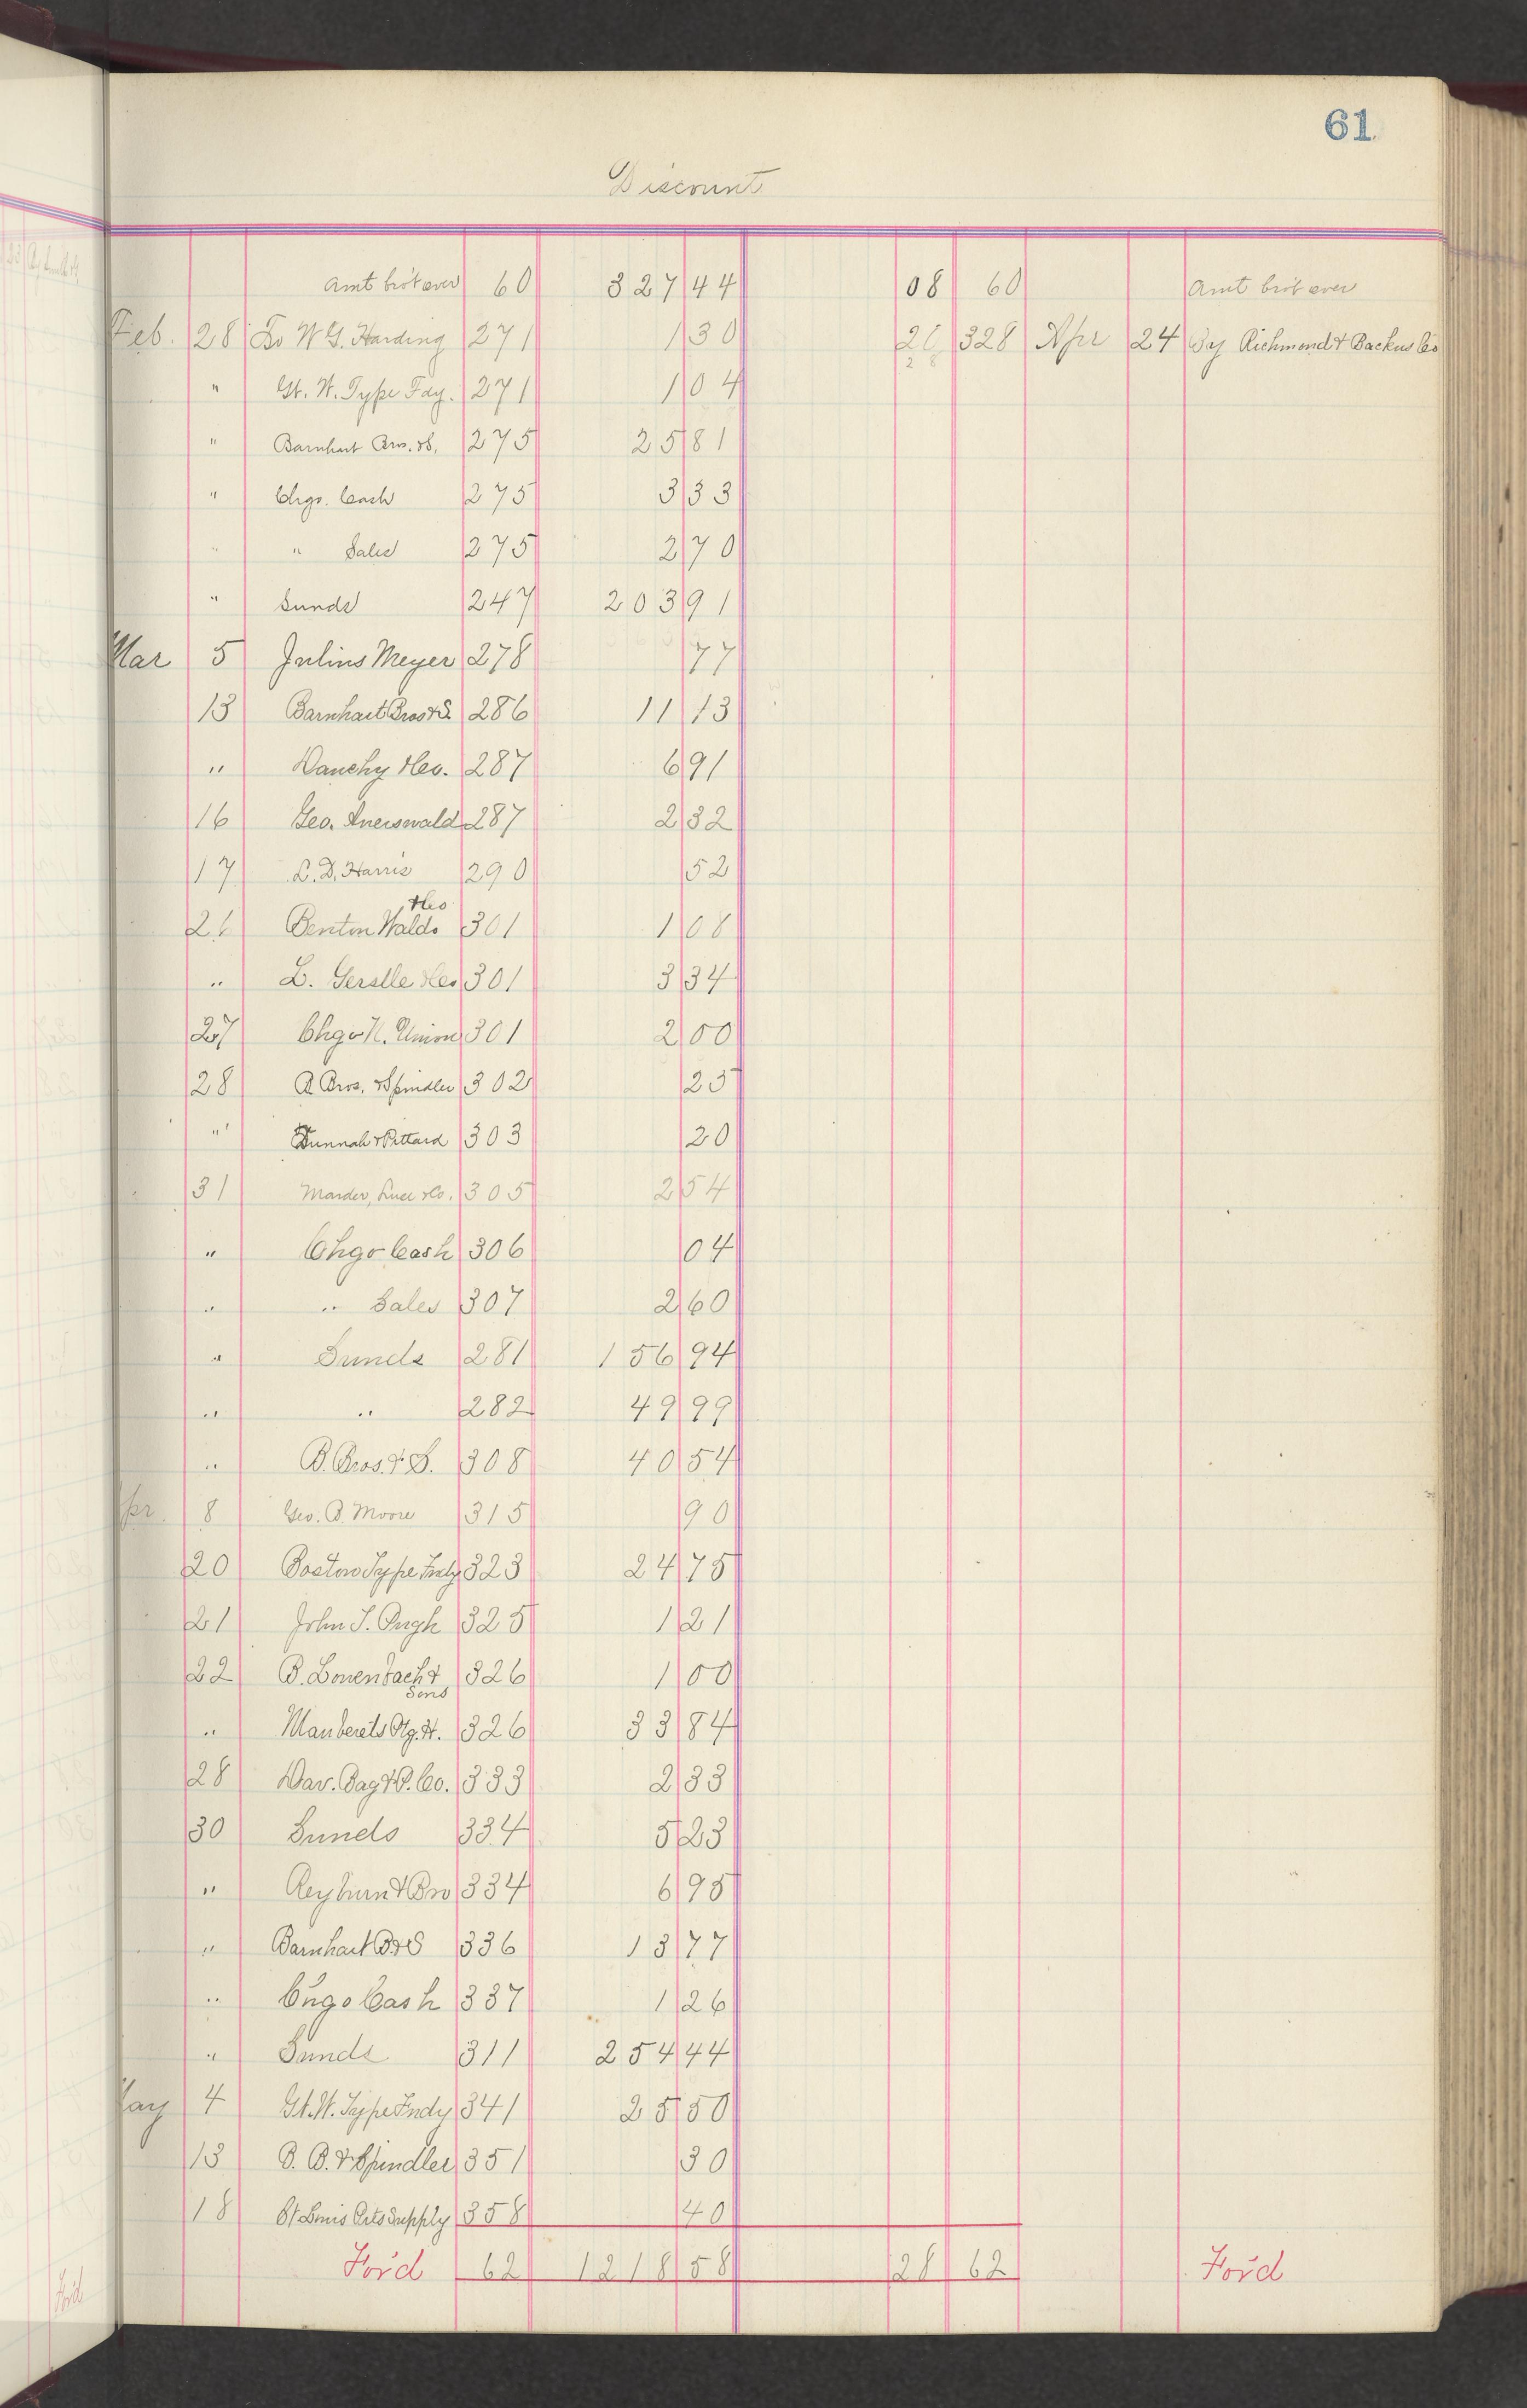 61
Discount
Amt bro't over 60 327 44 08 60 Amt bro't over
Feb. 28 To W. G. Harding 271 1 30 20 328 Apr 24 By Richmond & Backus Co
" Gt. W. Type Fdy. 271 1 04 2 8
" Barnhart Bros. &S. 275 25 81
" Chgo. Cash 275 3 33
" " Sales 275 2 70
" Sunds 247 203 91
Mar 5 Julius Meyer 278 77
13 Barnhart Bros & S 286 11 13
" Dauchy &Co. 287 6 91
16 Geo. Auerswald 287 2 32
17 C. D. Harris 290 52
26 Benton Waldo &Co 301 1 08
" L. Gerstle &Co 301 3 34
27 Chgo N. Union 301 2 00
28 B Bros. &Spindler 302 25
" Dunnah & Pittard 303 20
31 Marder, Luce &Co. 305 2 54
" Chgo Cash 306 04
" " Sales 307 2 60
" Sunds 281 156 94
" " 282 49 99
" B. Bros. & S. 308 40 54
Apr. 8 Geo. B. Moore 315 90
20 Boston Type Fndy 323 24 75
21 John S. Pugh 325 1 21
22 B. Lowenbach & Sons 326 1 00
" Manberets Ptg. H. 326 33 84
28 Dav. Bag & P. Co. 333 2 33
30 Sunds 334 5 23
" Reyburn & Bro 334 6 95
" Barnhart B & S 336 13 77
" Chgo Cash 337 1 26
" Sunds 311 254 44
May 4 Gt. W. Type Fndy 341 25 50
13 B. B. & Spindler 351 30
18 St Louis Ptrs Supply 358 40
For'd 62 1218 58 28 62 For'd